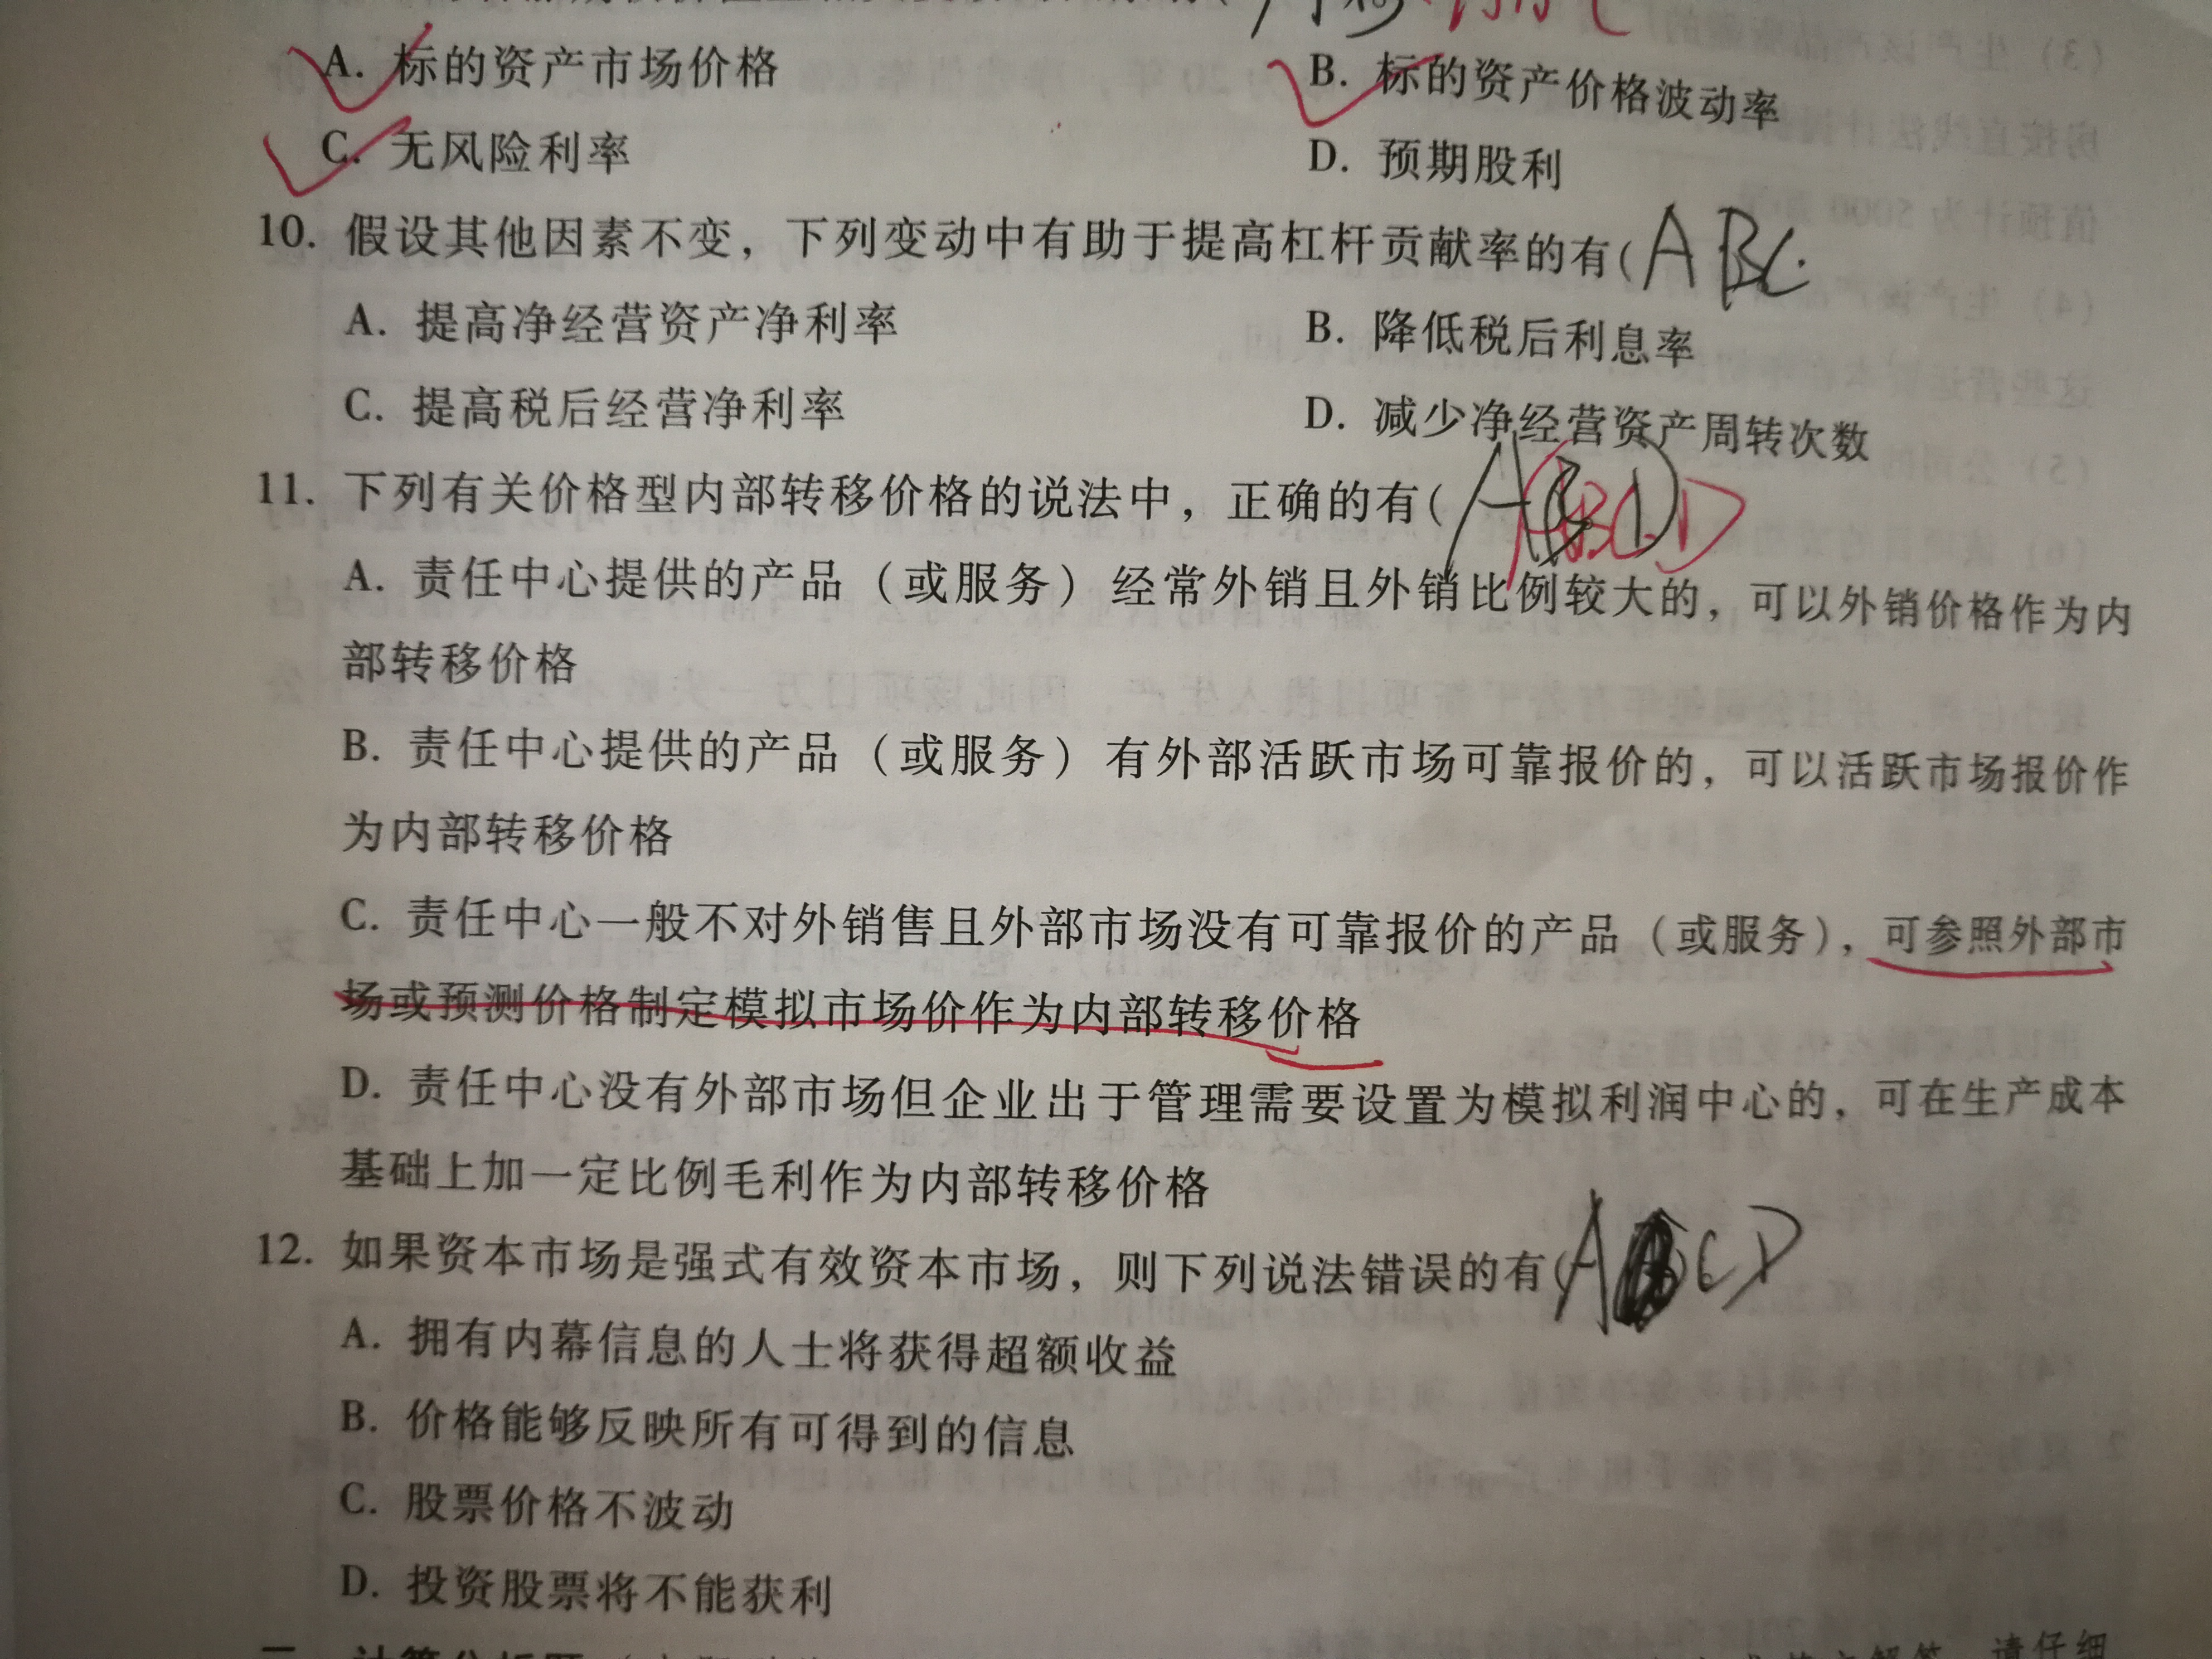 A. 标的资产市场价格 B. 标的资产价格波动率
C. 无风险利率 D. 预期股利
10. 假设其他因素不变，下列变动中有助于提高杠杆贡献率的有( ABC
A. 提高净经营资产净利率 B. 降低税后利息率
C. 提高税后经营净利率 D. 减少净经营资产周转次数
11. 下列有关价格型内部转移价格的说法中，正确的有( ABCD
A. 责任中心提供的产品（或服务）经常外销且外销比例较大的，可以外销价格作为内
部转移价格
B. 责任中心提供的产品（或服务）有外部活跃市场可靠报价的，可以活跃市场报价作
为内部转移价格
C. 责任中心一般不对外销售且外部市场没有可靠报价的产品（或服务），可参照外部市
场或预测价格制定模拟市场价作为内部转移价格
D. 责任中心没有外部市场但企业出于管理需要设置为模拟利润中心的，可在生产成本
基础上加一定比例毛利作为内部转移价格
12. 如果资本市场是强式有效资本市场，则下列说法错误的有( A CD
A. 拥有内幕信息的人士将获得超额收益
B. 价格能够反映所有可得到的信息
C. 股票价格不波动
D. 投资股票将不能获利
请仔细